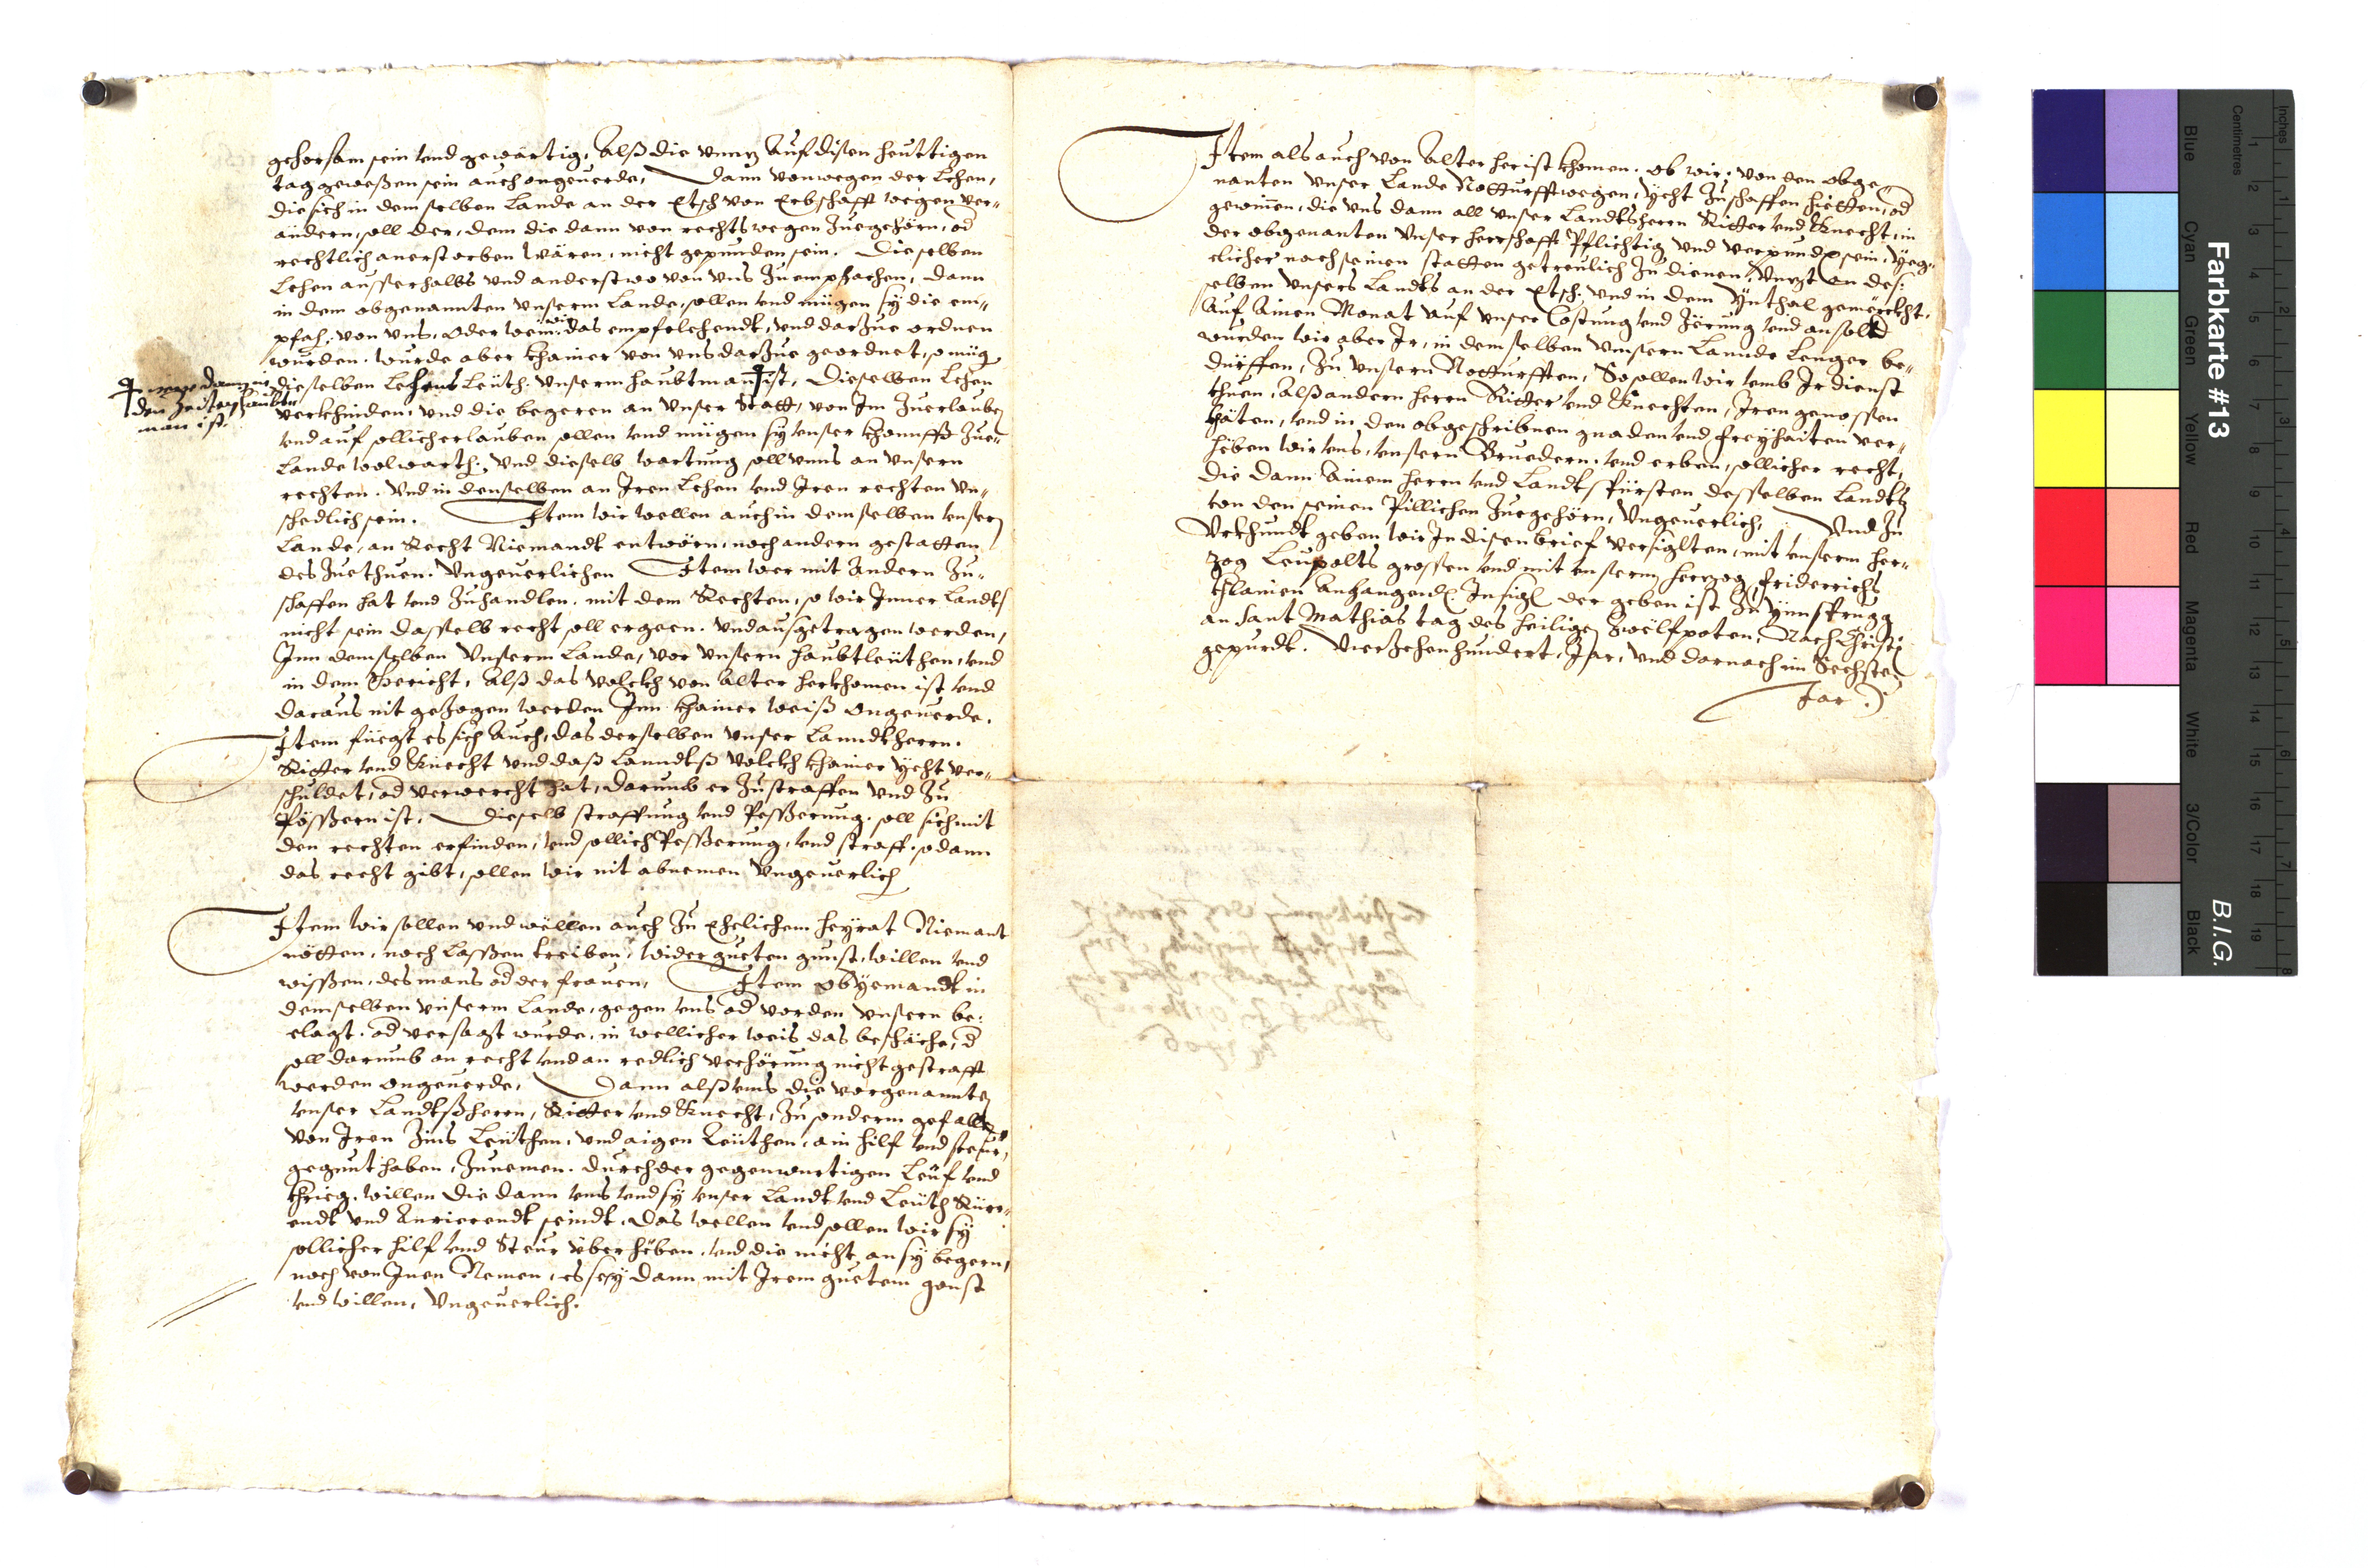 gehorsam sein vnd gewärtig, Alß die vnnz Auf disen heuttigen
tag geweßen sein auch ongeuerde, Dann von wegen der Lehen,
die sich in demselben Lande an der Etsch von Erbschafft wegen ver„
ändern, soll der, dem die dann von rechts wegen Zuegehörn, od
rechtlich anerstorben wären, nicht gepunden sein. Dieselben
Lehen ausserhalbs vnd anderstwo von vns Zuempfachen, dann
in dem obgenannten vnserm Lande, sollen vnd mügen sy die em„
pfah. von vns, Oder wem das empfelchendt, vnd darzue ordnen
wurden. wurde aber khainer von vns darzue geordnet, so müg
dieselben Lehens Leüth. vnserm haubtman † ist, dieselben Lehen
verkhinden, vnd die begeren an vnser Statt, von Im Zuerlauben
vnd auf sollich erlauben sollen vnd mügen sy vnser khonnfft Zue„
Lande wol warth: vnd dieselb wartung soll vnns an vnsern
rechten. Vnd in denselben an Iren Lehen vnd Iren rechten vn„
schedlich sein. Item wir wellen auch in demselben vnserm
Lande, an Recht Niemandt entwörn, noch andern gestatten
des Zuethuen. Vngeuerlichen Item wer mit Andern Zu„
schaffen hat vnd Zuhandlen. mit dem Rechten, so wir Inner Landts
nicht sein dasselb recht soll ergeen. Vnd ausgetragen werden,
Inn demselben Vnserm Lande, vor vnsern haubtleüthen, vnd
in dem Gericht, Alß das volckh von Alter herkhomen ist vnd
daraus nit gezogen werden Inn khainer weiß Ongeuerde.
Item fuegt es sich Auch, das derselben vnser Lanndtherrn.
Ritter vnd Knecht vnd daß Lanndtß volckh khainer ÿcht ver„
schuldet, od verwercht hat, darumb er Zustraffen vnd Zu
Pössern ist. Dieselb straffung vnd Pesserung. soll sich mit
den rechten erfinden, vnd sollich Pesserung, vnd straff. so dann
das recht gibt, sollen wir nit abnemen Vngeuerlich
Item wir sollen vnd wellen auch Zu Ehelichem heyrat Niemant
nötten, noch lassen treiben, wider gueten gunst, willen vnd
wissen, des mans od der frauen, Item ob ÿemandt in
demselben vnserm Lande, gegen vns od vor den vnsern be:
clagt. od versagt wurde, in wellicher weis das beschäche, d
soll darumb on recht vnd an redlich verhörung nicht gestrafft
werden ongeuerde, Dann alß vns die vorgenannten
vnser Landtßherrn, Ritter vnd Knecht, Zu sonderm gefallen
von Iren Zins Leüthen, vnd aigen Leüthen, ain hilf vnd steur,
gegunt haben, Zunemen. durch der gegenwurtigen Leuf vnd
khrieg. willen die dann vns vnd sy vnser Landt vnd Leüth Rüer„
endt vnd Anrierendt seindt. Das wellen vnd sollen wir sy
sollicher hilf vnd Steur überhöben. vnd die nicht an sy begern,
noch von Inen Nemen, es seÿ dann mit Irem guetem gonst
vnd willen, Vngeuerlich.
den Zeiten haubt„
man ist.
Item als auch von Alter her ist khomen. ob wir, von den obge„
nanten vnser Lande Notturfft wegen, ÿcht Zuschaffen hietten, od
gewinen, die vns dann all vnser Landtsherrn Ritter vnd Knecht, in
der obgenanten vnser herrschafft Pflichtig vnd verpunden sein, ÿeg„
clicher nach seinen statten getreulich Zu dienen, Vnnzt an des:
selben vnsers Landts an der Etsch. vnd in dem Ynthal gemerckht.
Auf Ainen Monat auf vnser Costung vnd Zörung vnd an sold
wurden wir aber Ir, in demselben vnnsern Lannde Lenger be„
dürffen, Zu vnsern Notturfften, So sollen wir vmb Ir dienst
thuen, Alß andern herrn Ritter vnd Knechten, Iren genossen
thäten, vnd in den obgeschribnen gnaden vnd freyhaiten ver„
höben wir vns, vnsern Bruedern. vnd erben, sollicher recht,
die dann Ainem herrn vnd Landtsfürsten desselben Landts
von den seinen Pillichen Zuegehörn, Vngeuerlich, Vnd Zu
Vrkhundt geben wir In disen brief versiglten, mit vnserm her„
zog Leupolts grossen vnd mit vnserm herzog Friderichs
khlainen Anhangendn Insigl der geben ist Zu Ynnsprugg
an Sant Mathias tag des heiligen Zwelfpoten, Nach Christi
gepurdt. Vierzehenhundert, Jar, vnd darnach im Sechsten
Jar
Farbkarte #13
B.I.G.
Blue Cyan Green Yellow Red Magenta White 3/Color Black
Centimetres
Inches
1 2 3 4 5 6 7 8 9 10 11 12 13 14 15 16 17 18 19
1 2 3 4 5 6 7 8